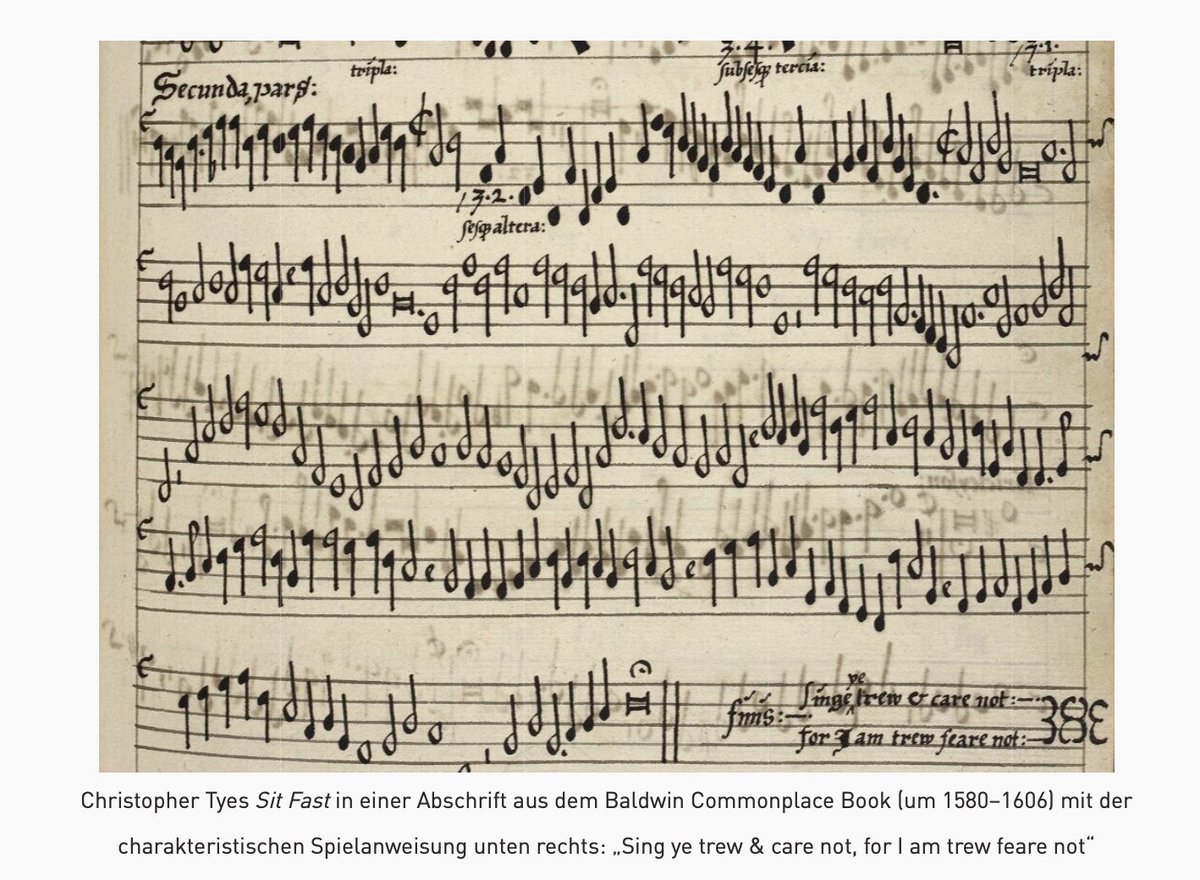 tripla:
3.4.
subsesqʒ tercia:
/3.1.
tripla:
Secunda pars:
/3.2.
sesqʒ altera:
ye
Singe trew & care not:—
finis:—
for I am trew feare not:—
Christopher Tyes Sit Fast in einer Abschrift aus dem Baldwin Commonplace Book (um 1580–1606) mit der
charakteristischen Spielanweisung unten rechts: „Sing ye trew & care not, for I am trew feare not“